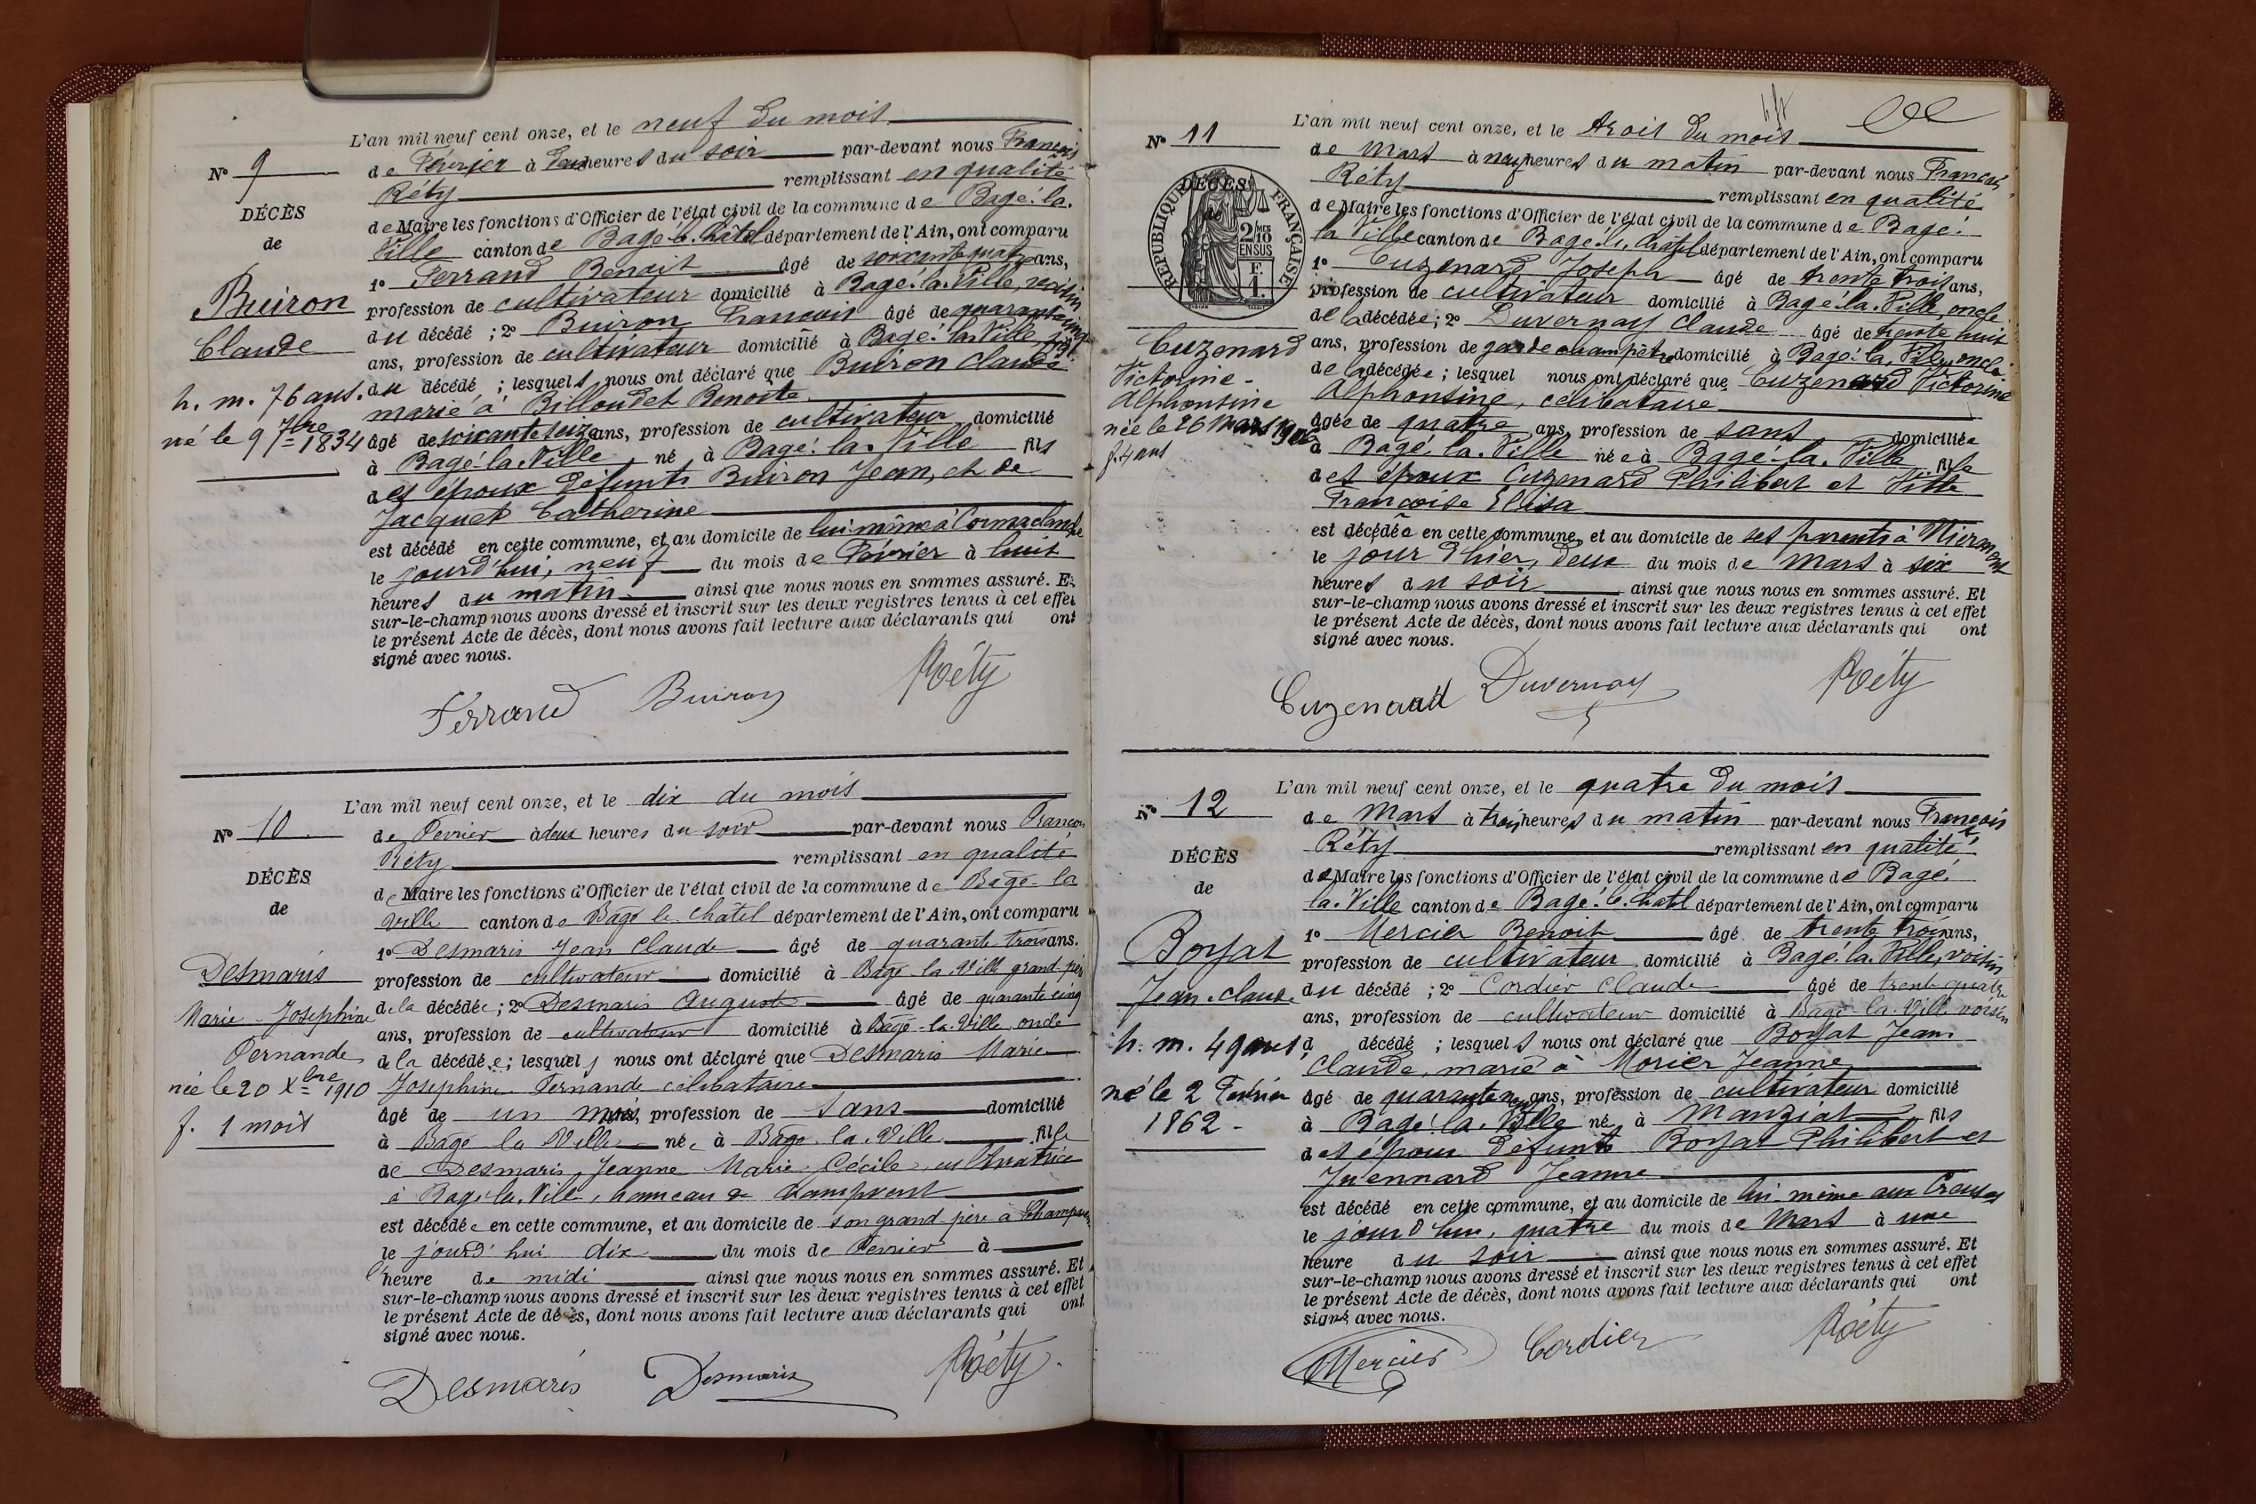 L'an mil neuf cent onze, et le neuf du mois
N° 9
de Février à deux heures du soir par-devant nous François
Réty remplissant en qualité
DÉCÈS
de Maire les fonctions d'Officier de l'état civil de la commune de Bagé-la-
de
Ville canton de Bagé-le-Châtel département de l'Ain, ont comparu
1° Ferrand Benoit âgé de soixante quatre ans,
Buiron
profession de cultivateur domicilié à Bagé-la-Ville, voisin
du décédé ; 2° Buiron François âgé de quarante cinq
Claude
ans, profession de cultivateur domicilié à Bagé-la-Ville fils
h. m. 76 ans.
du décédé ; lesquels nous ont déclaré que Buiron Claude
marié à Billoudet Benoite
né le 9 7bre 1834
âgé de soixante seize ans, profession de cultivateur domicilié
à Bagé-la-Ville né à Bagé-la-Ville fils
des époux défunts Buiron Jean, et de
Jacquet Catherine
est décédé en cette commune, et au domicile de lui-même à Cormaclanche
le jourd'hui, neuf du mois de Février à huit
heures du matin ainsi que nous nous en sommes assuré. Et
sur-le-champ nous avons dressé et inscrit sur les deux registres tenus à cet effet
le présent Acte de décès, dont nous avons fait lecture aux déclarants qui ont
signé avec nous.
Ferrand Buiron Réty
L'an mil neuf cent onze, et le dix du mois
N° 10
de Fevrier à deux heures du soir par-devant nous François
Réty remplissant en qualité
DÉCÈS
de Maire les fonctions d'Officier de l'état civil de la commune de Bagé-la
de
Ville canton de Bagé le Châtel département de l'Ain, ont comparu
1° Desmaris Jean Claude âgé de quarante trois ans.
Desmaris
profession de cultivateur domicilié à Bagé la Ville grand-père
Marie-Josephine
de la décédée ; 2° Desmaris Auguste âgé de quarante cinq
ans, profession de cultivateur domicilié à Bagé-la-Ville, oncle
Fernande
de la décédée ; lesquels nous ont déclaré que Desmaris Marie
née le 20 Xbre 1910
Josephine Fernande célibataire
f. 1 mois
âgé de un mois, profession de sans domicilié
à Bagé la Ville née à Bagé-la-Ville fille
de Desmaris Jeanne Marie Cécile cultivatrice
à Bagé-la-Ville, hameau de Champvent
est décédée en cette commune, et au domicile de son grand père à Champvent
le jourd'hui dix du mois de Fevrier à
l'heure de midi ainsi que nous nous en sommes assuré. Et
sur-le-champ nous avons dressé et inscrit sur les deux registres tenus à cet effet
le présent Acte de décès, dont nous avons fait lecture aux déclarants qui ont
signé avec nous.
Desmaris Desmaris Réty
L'an mil neuf cent onze, et le trois du mois
N° 11
de Mars à neuf heures du matin par-devant nous François
Réty remplissant en qualité
DÉCÈS
de
RÉPUBLIQUE FRANÇAISE
2/10 EN SUS
F. 1.
de Maire les fonctions d'Officier de l'état civil de la commune de Bagé-
la Ville canton de Bagé-le-Châtel département de l'Ain, ont comparu
1° Cuzenard Joseph âgé de trente trois ans,
profession de cultivateur domicilié à Bagé-la-Ville, oncle
de la décédée ; 2° Duvernay Claude âgé de trente huit
Cuzenard
ans, profession de garde champêtre domicilié à Bagé-la-Ville, oncle
Victorine-
de la décédée ; lesquel nous ont déclaré que Cuzenard Victorine
Alphonsine
Alphonsine, célibataire
née le 26 Mars 1906
âgée de quatre ans, profession de sans domiciliée
f. 4 ans
à Bagé-la-Ville née à Bagé-la-Ville fille
des époux Cuzenard Philibert et Vitte
Françoise Elisa
est décédée en cette commune, et au domicile de ses parents à Niermont
le jour d'hier, deux du mois de Mars à six
heures du soir ainsi que nous nous en sommes assuré. Et
sur-le-champ nous avons dressé et inscrit sur les deux registres tenus à cet effet
le présent Acte de décès, dont nous avons fait lecture aux déclarants qui ont
signé avec nous.
Cuzenard Duvernay Réty
L'an mil neuf cent onze, et le quatre du mois
N° 12
de Mars à trois heures du matin par-devant nous François
Réty remplissant en qualité
DÉCÈS
de Maire les fonctions d'Officier de l'état civil de la commune de Bagé-
de
la-Ville canton de Bagé-le-Chatel département de l'Ain, ont comparu
1° Mercier Benoit âgé de trente trois ans,
Boyat
profession de cultivateur domicilié à Bagé-la-Ville, voisin
Jean-Claude
du décédé ; 2° Cordier Claude âgé de trente quatre
ans, profession de cultivateur domicilié à Bagé la-Ville voisin
h. m. 49 ans
d décédé ; lesquels nous ont déclaré que Boyat Jean
Claude, marié à Morier Jeanne
né le 2 Février
âgé de quarante neuf ans, profession de cultivateur domicilié
1862-
à Bagé-la-Ville né à Manziat fils
des époux défunts Boyat Philibert et
Jeanne
est décédé en cette commune, et au domicile de lui-même aux Creuses
le jourd'hui, quatre du mois de Mars à une
heure du soir ainsi que nous nous en sommes assuré. Et
sur-le-champ nous avons dressé et inscrit sur les deux registres tenus à cet effet
le présent Acte de décès, dont nous avons fait lecture aux déclarants qui ont
signé avec nous.
Mercier Cordier Réty